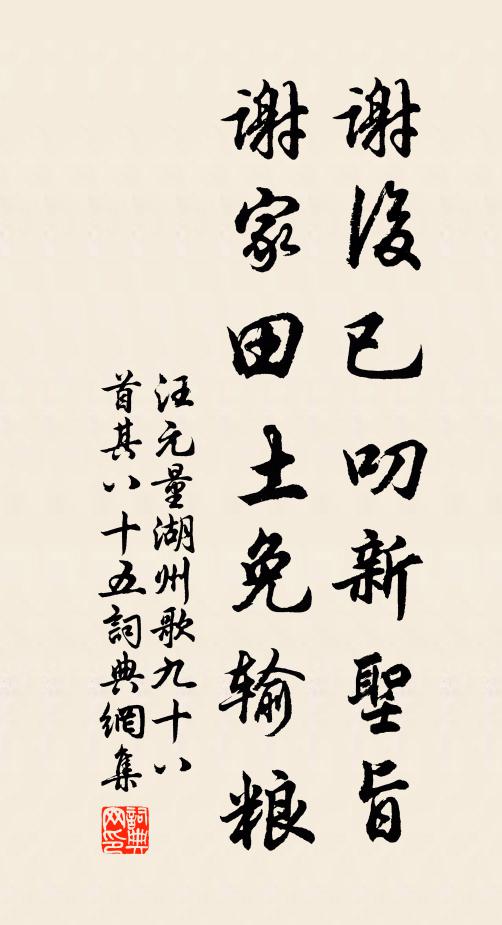 谢后已叨新聖旨
谢家田土免输粮
汪元量湖州歌九十八
首其八十五詞典網集
詞典
网印